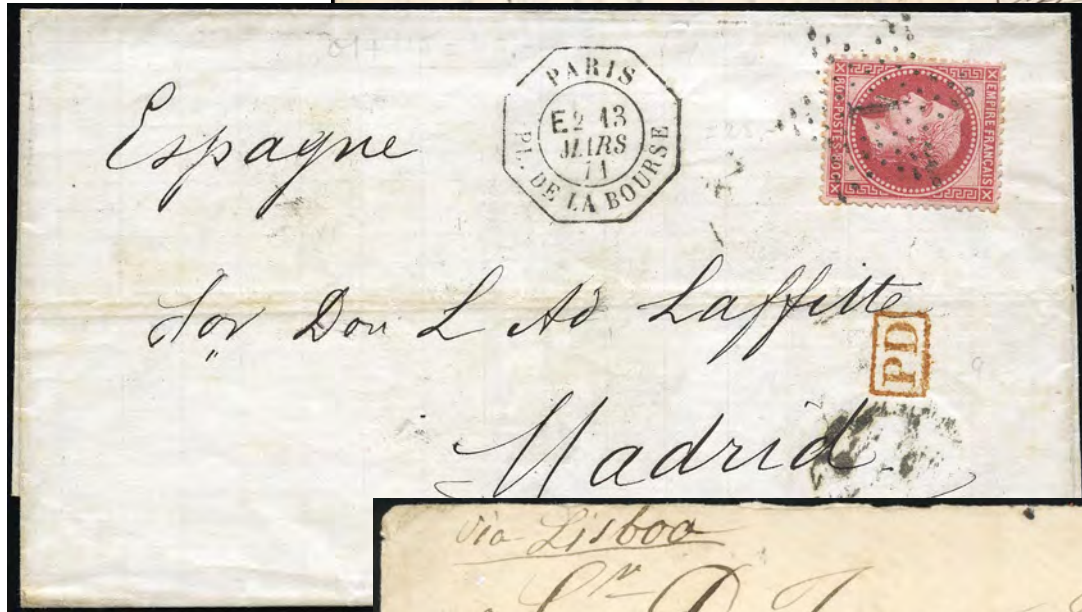 Espagne
PARIS
E2 13
MARS
71
PL. DE LA BOURSE
EMPIRE FRANCAIS
80C POSTES 80C
1
Sor Don L Ad Laffitte
PD
Madrid
Via Lisboa
Sr D. J